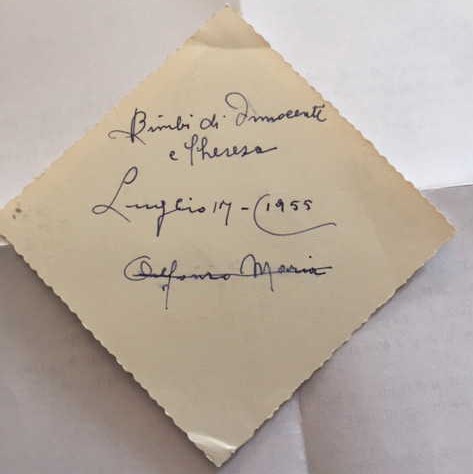 Bimbi di Innocente
e Theresa
Luglio 17 - 1955
Alfonso Maria